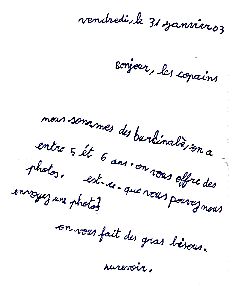 vendredi, le 31 janvier 03
Bonjour, les copains
nous sommes des burkinabè, on a
entre 5 ét 6 ans. on vous offre des
photos. est-ce-que vous pouvez nous
envoyez une photo?
on vous fait des gras bisous.
aurevoir.